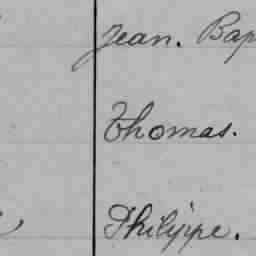 Jean. Bap
Thomas.
Philippe.